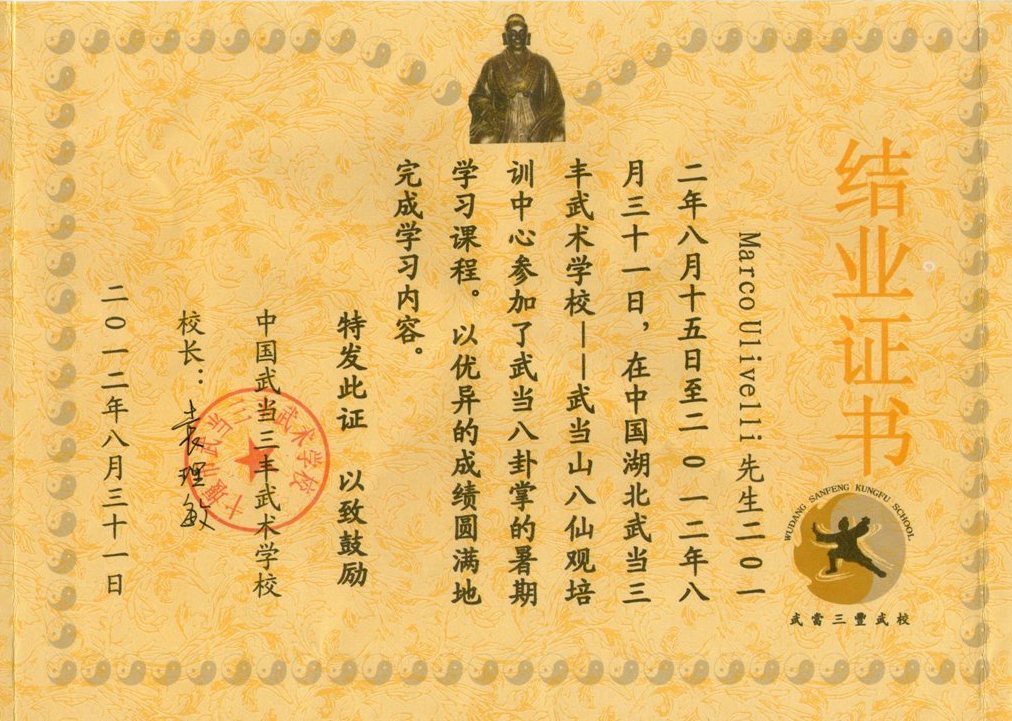 结业证书
WUDANG SANFENG KUNGFU SCHOOL
武當三豐武校
Marco Ulivelli 先生二〇一
二年八月十五日至二〇一二年八
月三十一日，在中国湖北武当三
丰武术学校——武当山八仙观培
训中心参加了武当八卦掌的暑期
学习课程。以优异的成绩圆满地
完成学习内容。
特发此证 以致鼓励
中国武当三丰武术学校
校长：袁理敏
十堰市武当三丰武术学校
二〇一二年八月三十一日